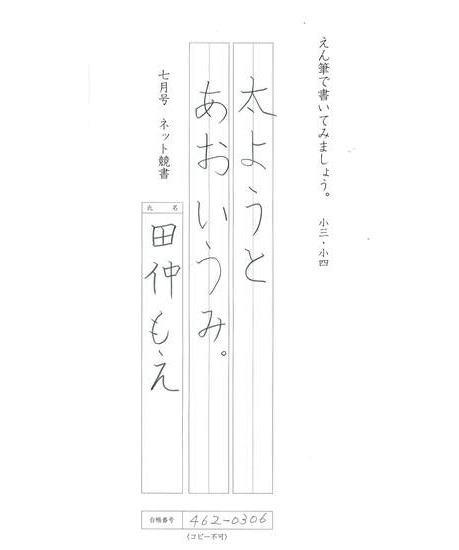 えん筆で書いてみましょう。 小三・小四
太ようと
あおいうみ。
七月号 ネット競書
氏名
田仲もえ
合格番号 462-0306
〈コピー不可〉